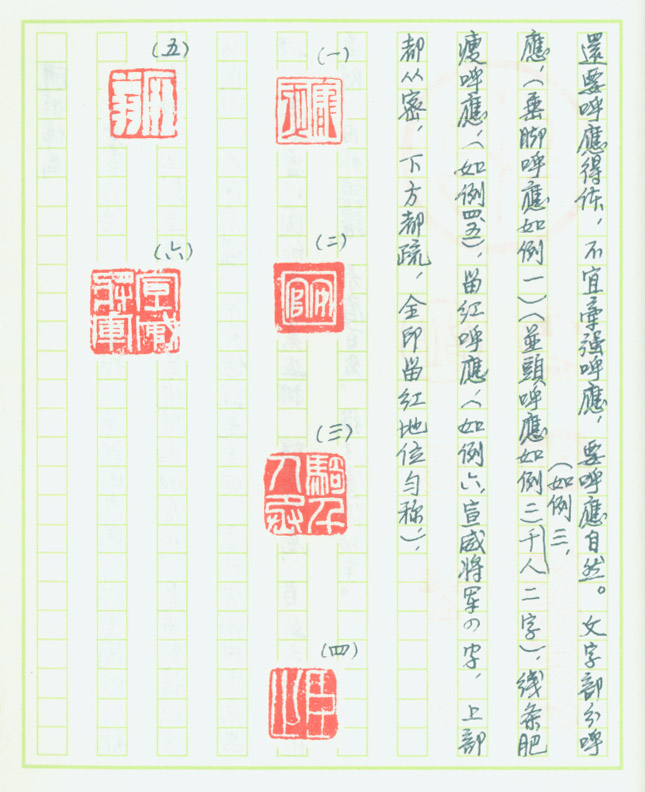 還要呼應得体，不宜牽强呼應，要呼應自然。文字部分呼
應，（垂脚呼應如例一）（並頭呼應如例二）（如例三，千人二字），线条肥
瘦呼應，（如例四、五），留红呼應，（如例六，宣威将军の字，上部
都从密，下方都疏，全印留红地位匀称），
（一）
（二）
（三）
（四）
（五）
（六）
宣威将軍